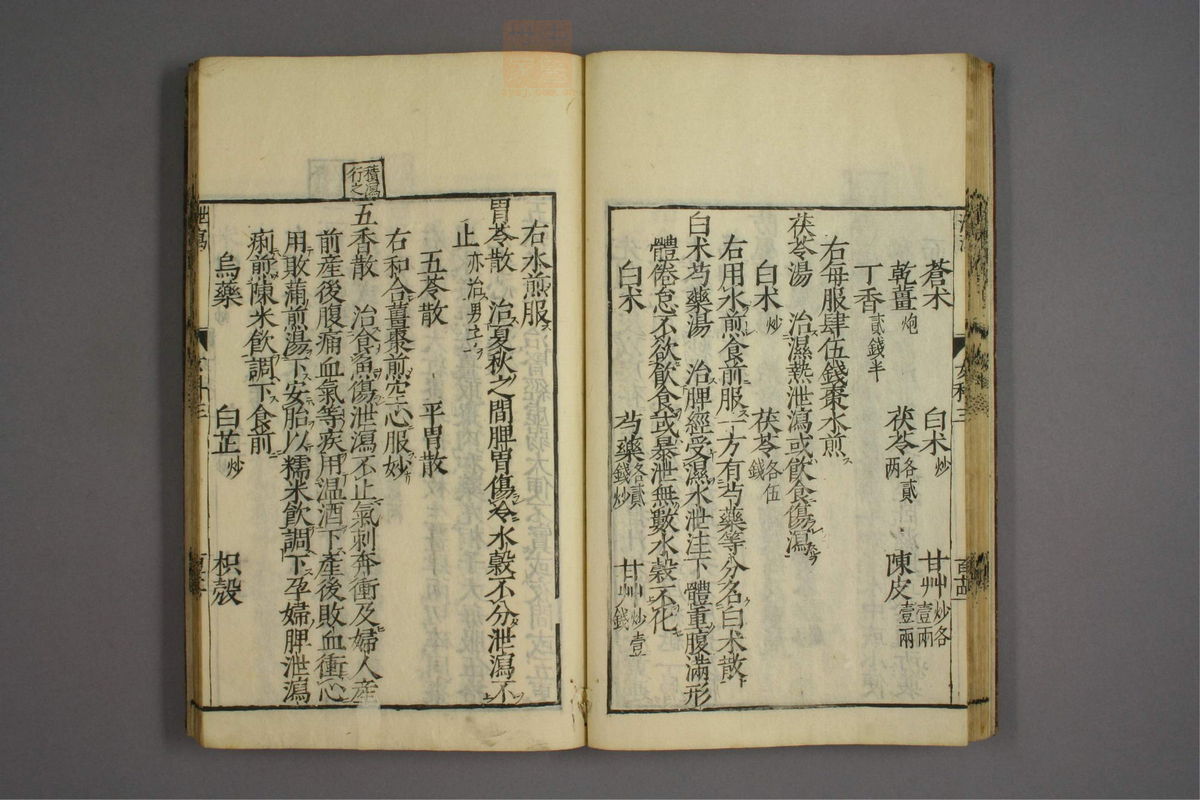 蒼朮　白朮炒　甘艸炒各壹兩
乾薑炮　茯苓各貳兩　陳皮壹兩
丁香貳錢半
右每服肆伍錢棗水煎
茯苓湯　治濕熱泄瀉或飲食傷瀉
白朮炒　茯苓各伍錢
右用水煎食前服一方有芍藥等分名白朮散
白朮芍藥湯　治脾經受濕水泄注下體重腹滿形
體倦怠不欲飲食或暴泄無數水穀不化
白朮　芍藥各貳錢炒　甘艸炒壹錢
右水煎服
胃苓散　治夏秋之間脾胃傷冷水穀不分泄瀉不
止亦治男士
五苓散　平胃散
右和合薑棗煎空心服妙
積瀉行之
五香散　治食魚傷泄瀉不止氣刺奔衝及婦人產
前產後腹痛血氣等疾用溫酒下產後敗血衝心
用敗蒲煎湯下安胎以糯米飲調下孕婦脾泄瀉
痢煎陳米飲調下食前
烏藥　白芷炒　枳殼
泄瀉